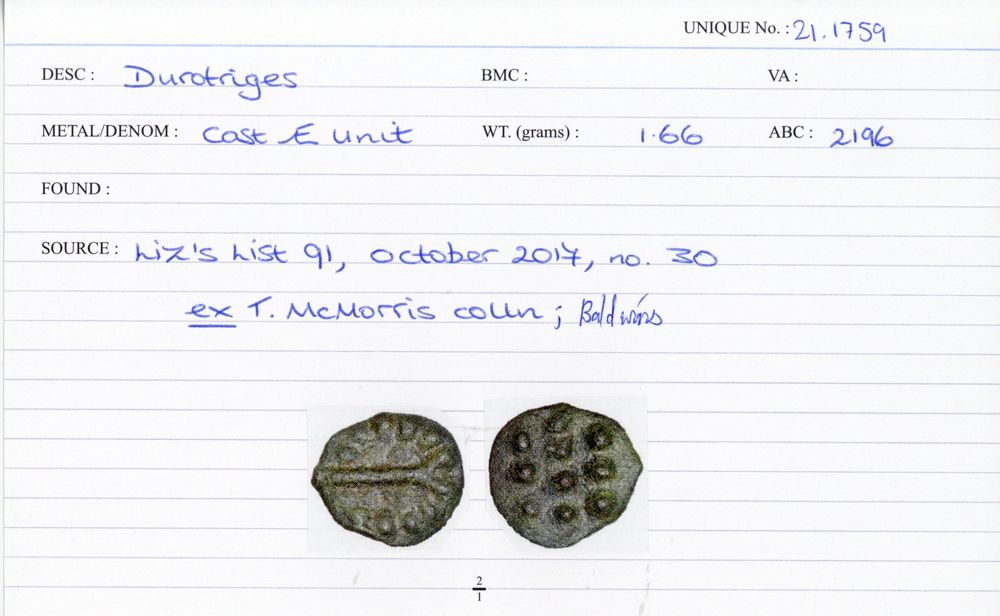 UNIQUE No. : 21.1759
DESC : Durotriges BMC : VA :
METAL/DENOM : Cast Æ Unit WT. (grams) : 1.66 ABC : 2196
FOUND :
SOURCE : Liz's List 91, October 2017, no. 30
ex T. McMorris colln ; Baldwins
2
1